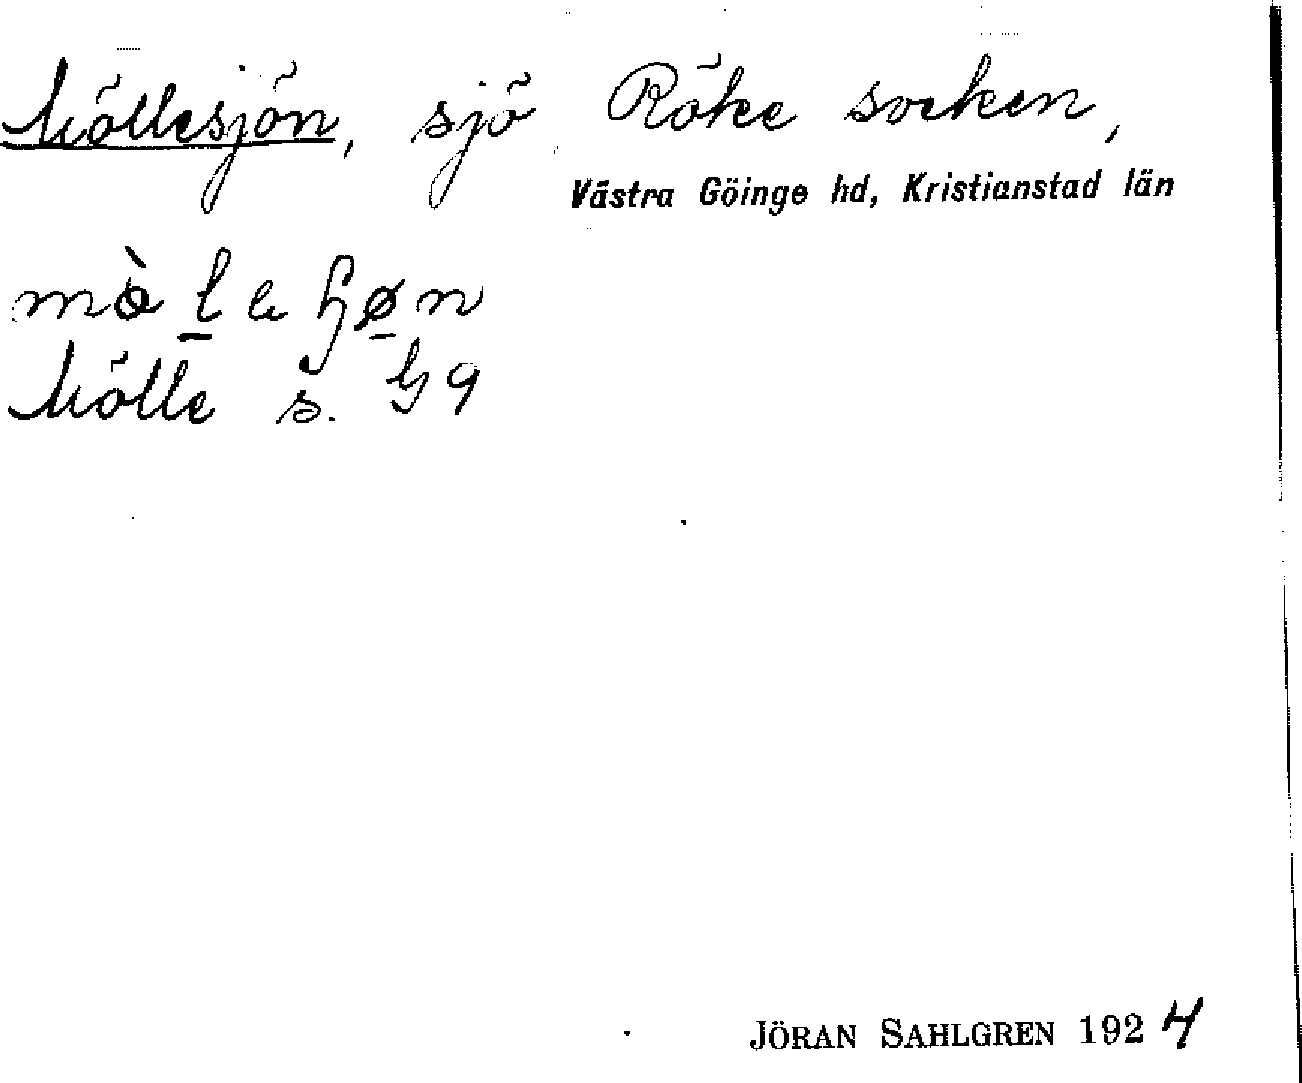 Möllesjön, sjö Röke socken,
Västra Göinge hd, Kristianstad län
Mölle s.
JÖRAN SAHLGREN 1924